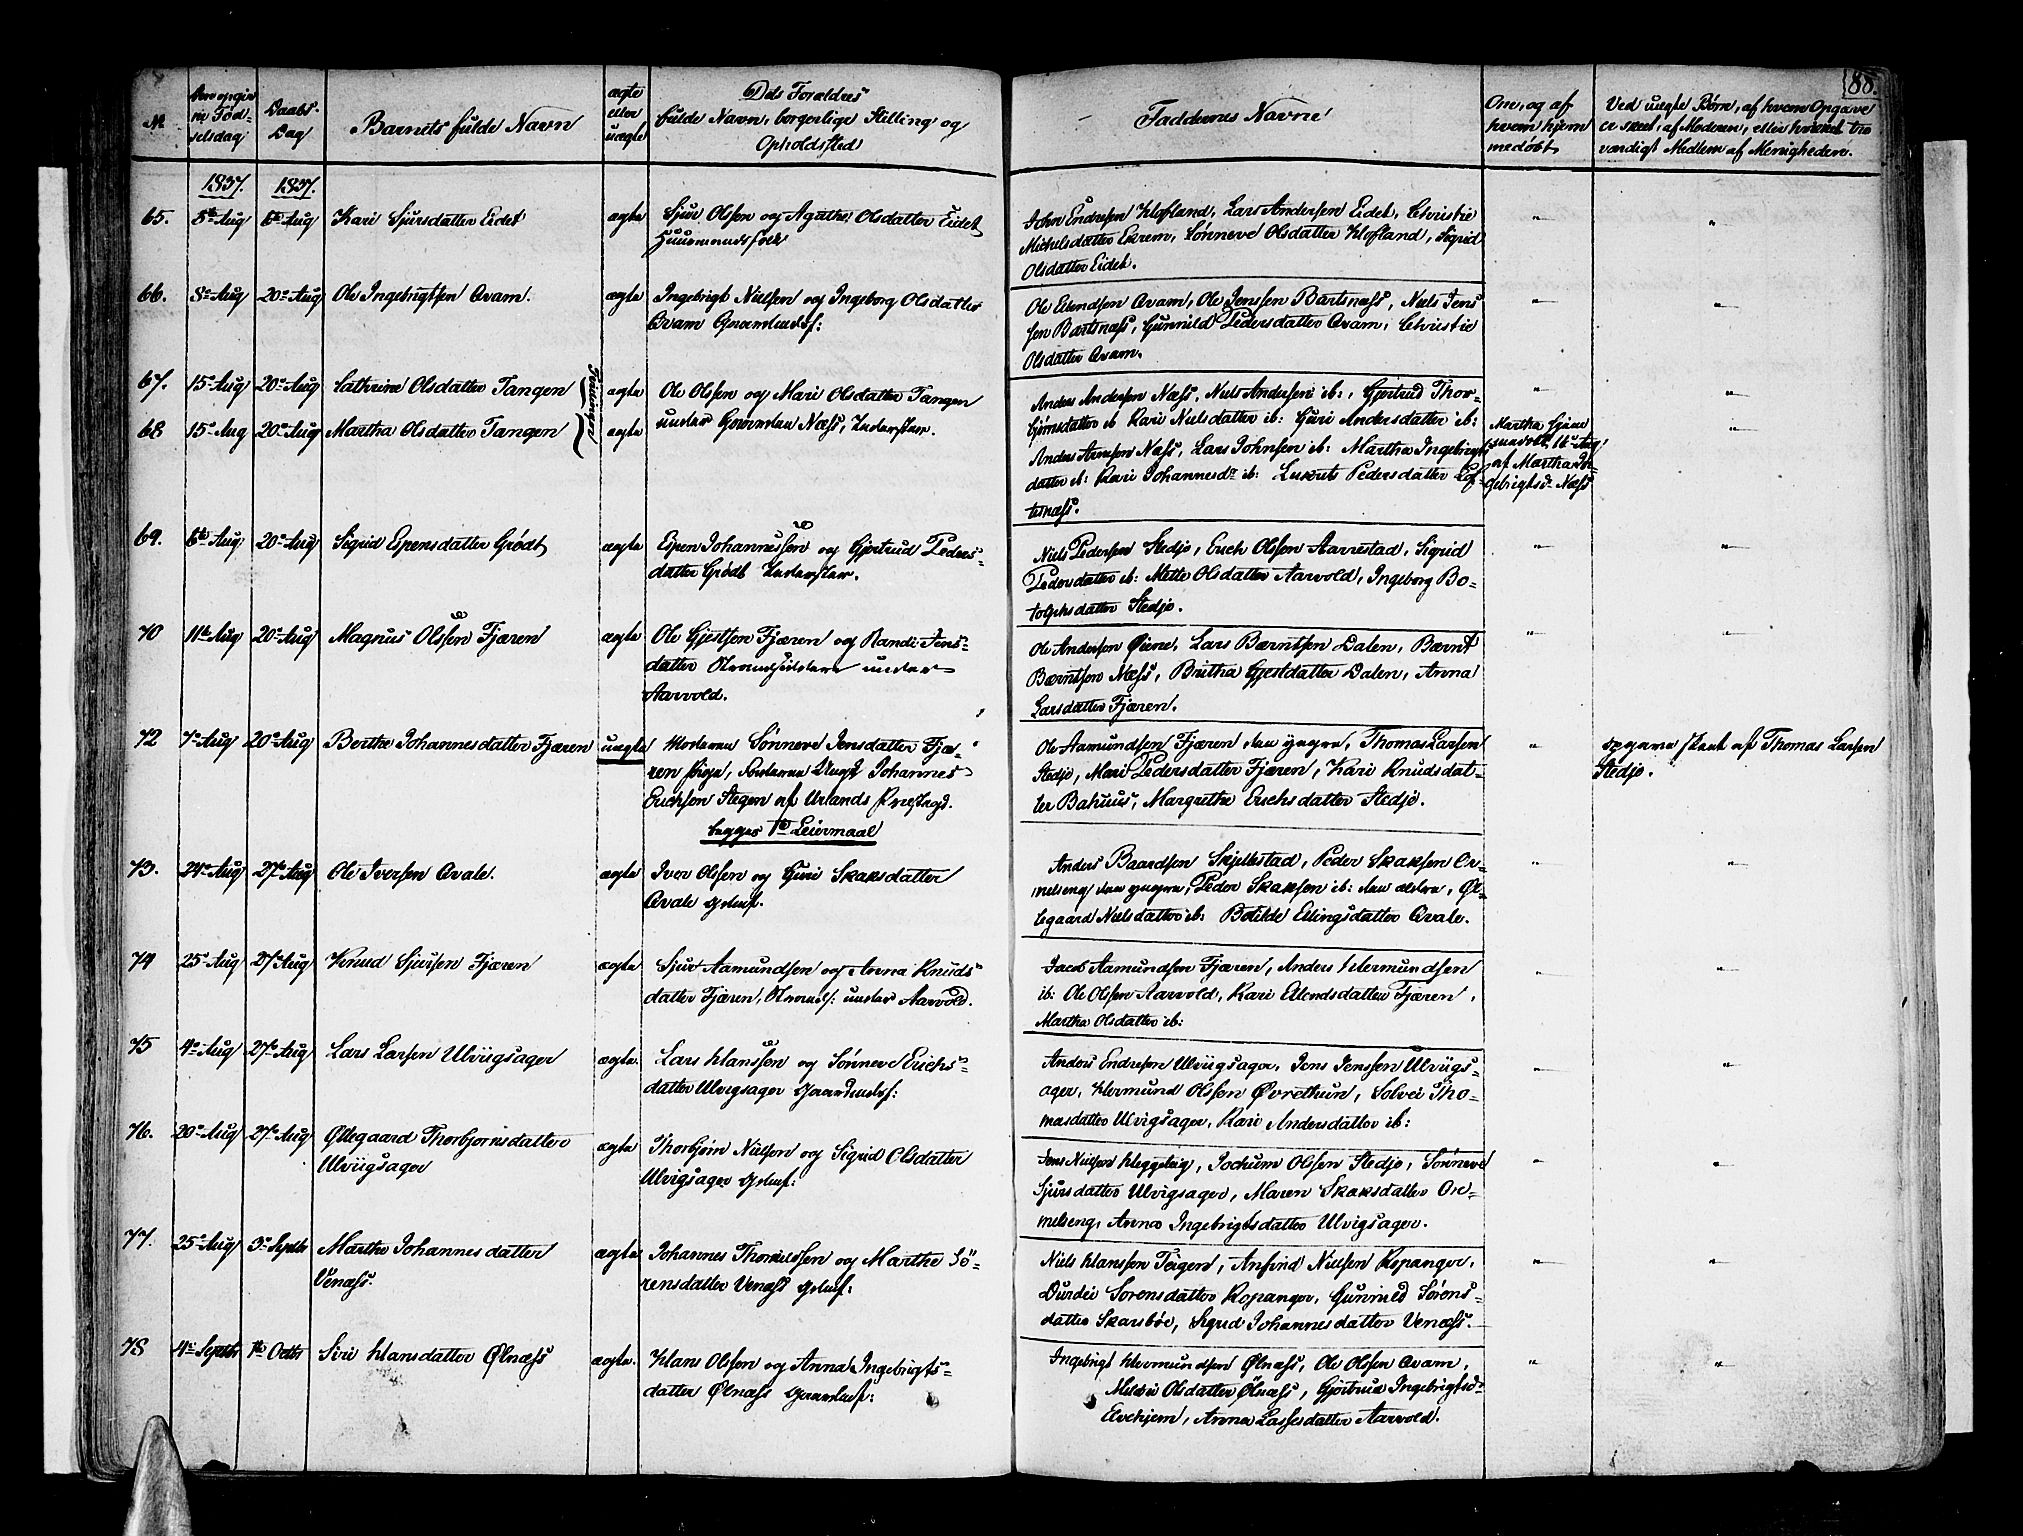 88.
No
Den opgivne Fødselsdag
Daabs-
Dag
Barnets fulde Navn
ægte
eller
uægte
Dets Forældres
fulde Navn, borgerlige Stilling og
Opholdsted
Faddernes Navne
Om, og af
hvem hjem
medøbt
Ved uægte Børn, af hvem Opgave
er skeet, af Moderen, eller hvilket tro
værdigt Medlem af Menigheden.
1837. 1837.
65. 5te Aug 6te Aug Kari Sjursdatter Eidet ægte
Sjur Olssen og Agathe Olsdatter Eidet
Huusmandsfolk
John Endresen Klofland, Lars Andersen Eidet, Christie
Michelsdatter Eкrem, Sønneve Olsdatter Klofland, Sigrid
Olsdatter Eidet.
66. 8de Aug 20de Aug Ole Ingebrigtsen Qvam. ægte
Ingebrigt Nielsen og Ingeborg Olsdatter
Qvam Gaardmdsf:
Ole Ellendsen Qvam, Ole Jenssen Bartsnæss, Niels Jens
sen Bartsnæss, Gunnild Pedersdatter Qvam, Christie
Olsdatter Qvam.
67. 15de Aug 20de Aug Cathrine Olsdatter Tangen ægte
68 15de Aug 20de Aug Martha Olsdatter Tangen ægte
Tvillinger
Ole Olssen og Mari Olsdatter Tangen
under Gaarden Næss, Inderster.
Anders Andersen Næss, Niels Andersen ib:, Gjertrud Thor-
bjørnsdatter ib Kari Nielsdatter ib: Guri Andersdatter ib:
Anders Arnesen Næss, Lars Johnsen ib: Martha Ingebrigts
datter ib: Kari Johannesdr ib: Lusrits Pedersdatter Lof-
tesnæss.
Martha hjemmedøbt 16de Aug
af Martha In-
gebrigtsdr Næss
69. 6te Aug 20de Aug Sigrid Espensdatter Grødt ægte
Espen Johannessen og Gjertrud Peders-
datter Grødt Inderster.
Niels Pedersen Stedje, Erich Olssen Aarrestad, Sigrid
Pedersdatter ib: Mette Olsdatter Aarvold, Ingeborg Bo-
tolphsdatter Stedje.
70 11te Aug 20de Aug Magnus Olssen Fjæren ægte
Ole Gjestsen Fjæren og Randi Jens-
datter Strandsiddere under
Aarvold.
Ole Andersen Øiene, Lars Bærntsen Dalen, Bærnt
Bærntsen Næss, Britha Gjestdatter Dalen, Anna
Larsdatter Fjæren.
72 7de Aug 20de Aug Berthe Johannesdatter Fjæren uægte
Moderen Sønneve Jensdatter Fjæ-
ren Pige, Faderen Ungk Johannes
Erichsen Stegen af Urlands Præstegd.
begges 1te Leiermaal
Ole Aamundsen Fjæren den yngre, Thomas Larsen
Stedje, Mari Pedersdatter Fjæren, Kari Knudsdat-
ter Bahuus, Margrethe Erichsdatter Stedje.
opgave skeet af Thomas Larsen
Stedje.
73. 24de Aug 27de Aug Ole Iversen Qvale. ægte
Iver Olssen og Guri Skaksdatter
Qvale Grdmsf.
Anders Baardsen Skjelkestad, Peder Skaksen Or-
melseng den yngre, Peder Skaksen ib: den ældre, Øl-
legaard Nielsdatter ib: Botilde Ellingsdatter Qvale.
74 25de Aug 27de Aug Knud Sjursen Fjæren ægte
Sjur Aamundsen og Anna Knuds
datter Fjæren, Strands: under Aarvold.
Jacob Aamundsen Fjæren, Anders Hermundsen
ib: Ole Olssen Aarvold, Kari Ellendsdatter Fjæren,
Martha Olsdatter ib:
75 4de Aug 27de Aug Lars Larsen Ulviigsager ægte.
Lars Hanssen og Sønneve Erichs-
datter Ulvigsager Gaardmdsf:
Anders Endresen Ulviigsager, Jens Jenssen Ulviigs-
ager, Hermund Olssen Øvrethun, Solvei Tho-
masdatter Ulvigsager, Kari Andersdatter ib:
76. 20de Aug 27de Aug Øllegaard Thorbjørnsdatter
Ulviigsager ægte
Thorbjørn Nielsen og Sigrid Olsdatter
Ulvigsager Grdmsf:
Jens Nielsen Kleggeteig, Jochum Olssen Stedje, Sønneve
Sjursdatter Ulvigsager, Maren Skaksdatter Or-
melseng, Anna Ingebrigtsdatter Ulvigsager.
77. 25de Aug 3de Septbr Marthe Johannesdatter
Venæss. ægte.
Johannes Thomassen og Marthe Sø-
rensdatter Venæss Grdmsf:
Niels Hanssen Teigen, Anfind Nielsen Kopanger,
Durdei Sørensdatter Kopanger, Gunnild Sørens-
datter Skarsbøe, Sigrid Johannesdatter Venæss.
78 4de Septbr 1te Octbr Siri Hansdatter Ølnæss ægte.
Hans Olssen og Anna Ingebrigts-
datter Ølnæss Gaardmsf:
Ingebrigt Hermundsen Ølnæss, Ole Olssen Qvam,
Mildri Olsdatter Ølnæss, Gjertrud Ingebrigtsdr
Elvehjem, Anna Lassesdatter Aarvold.